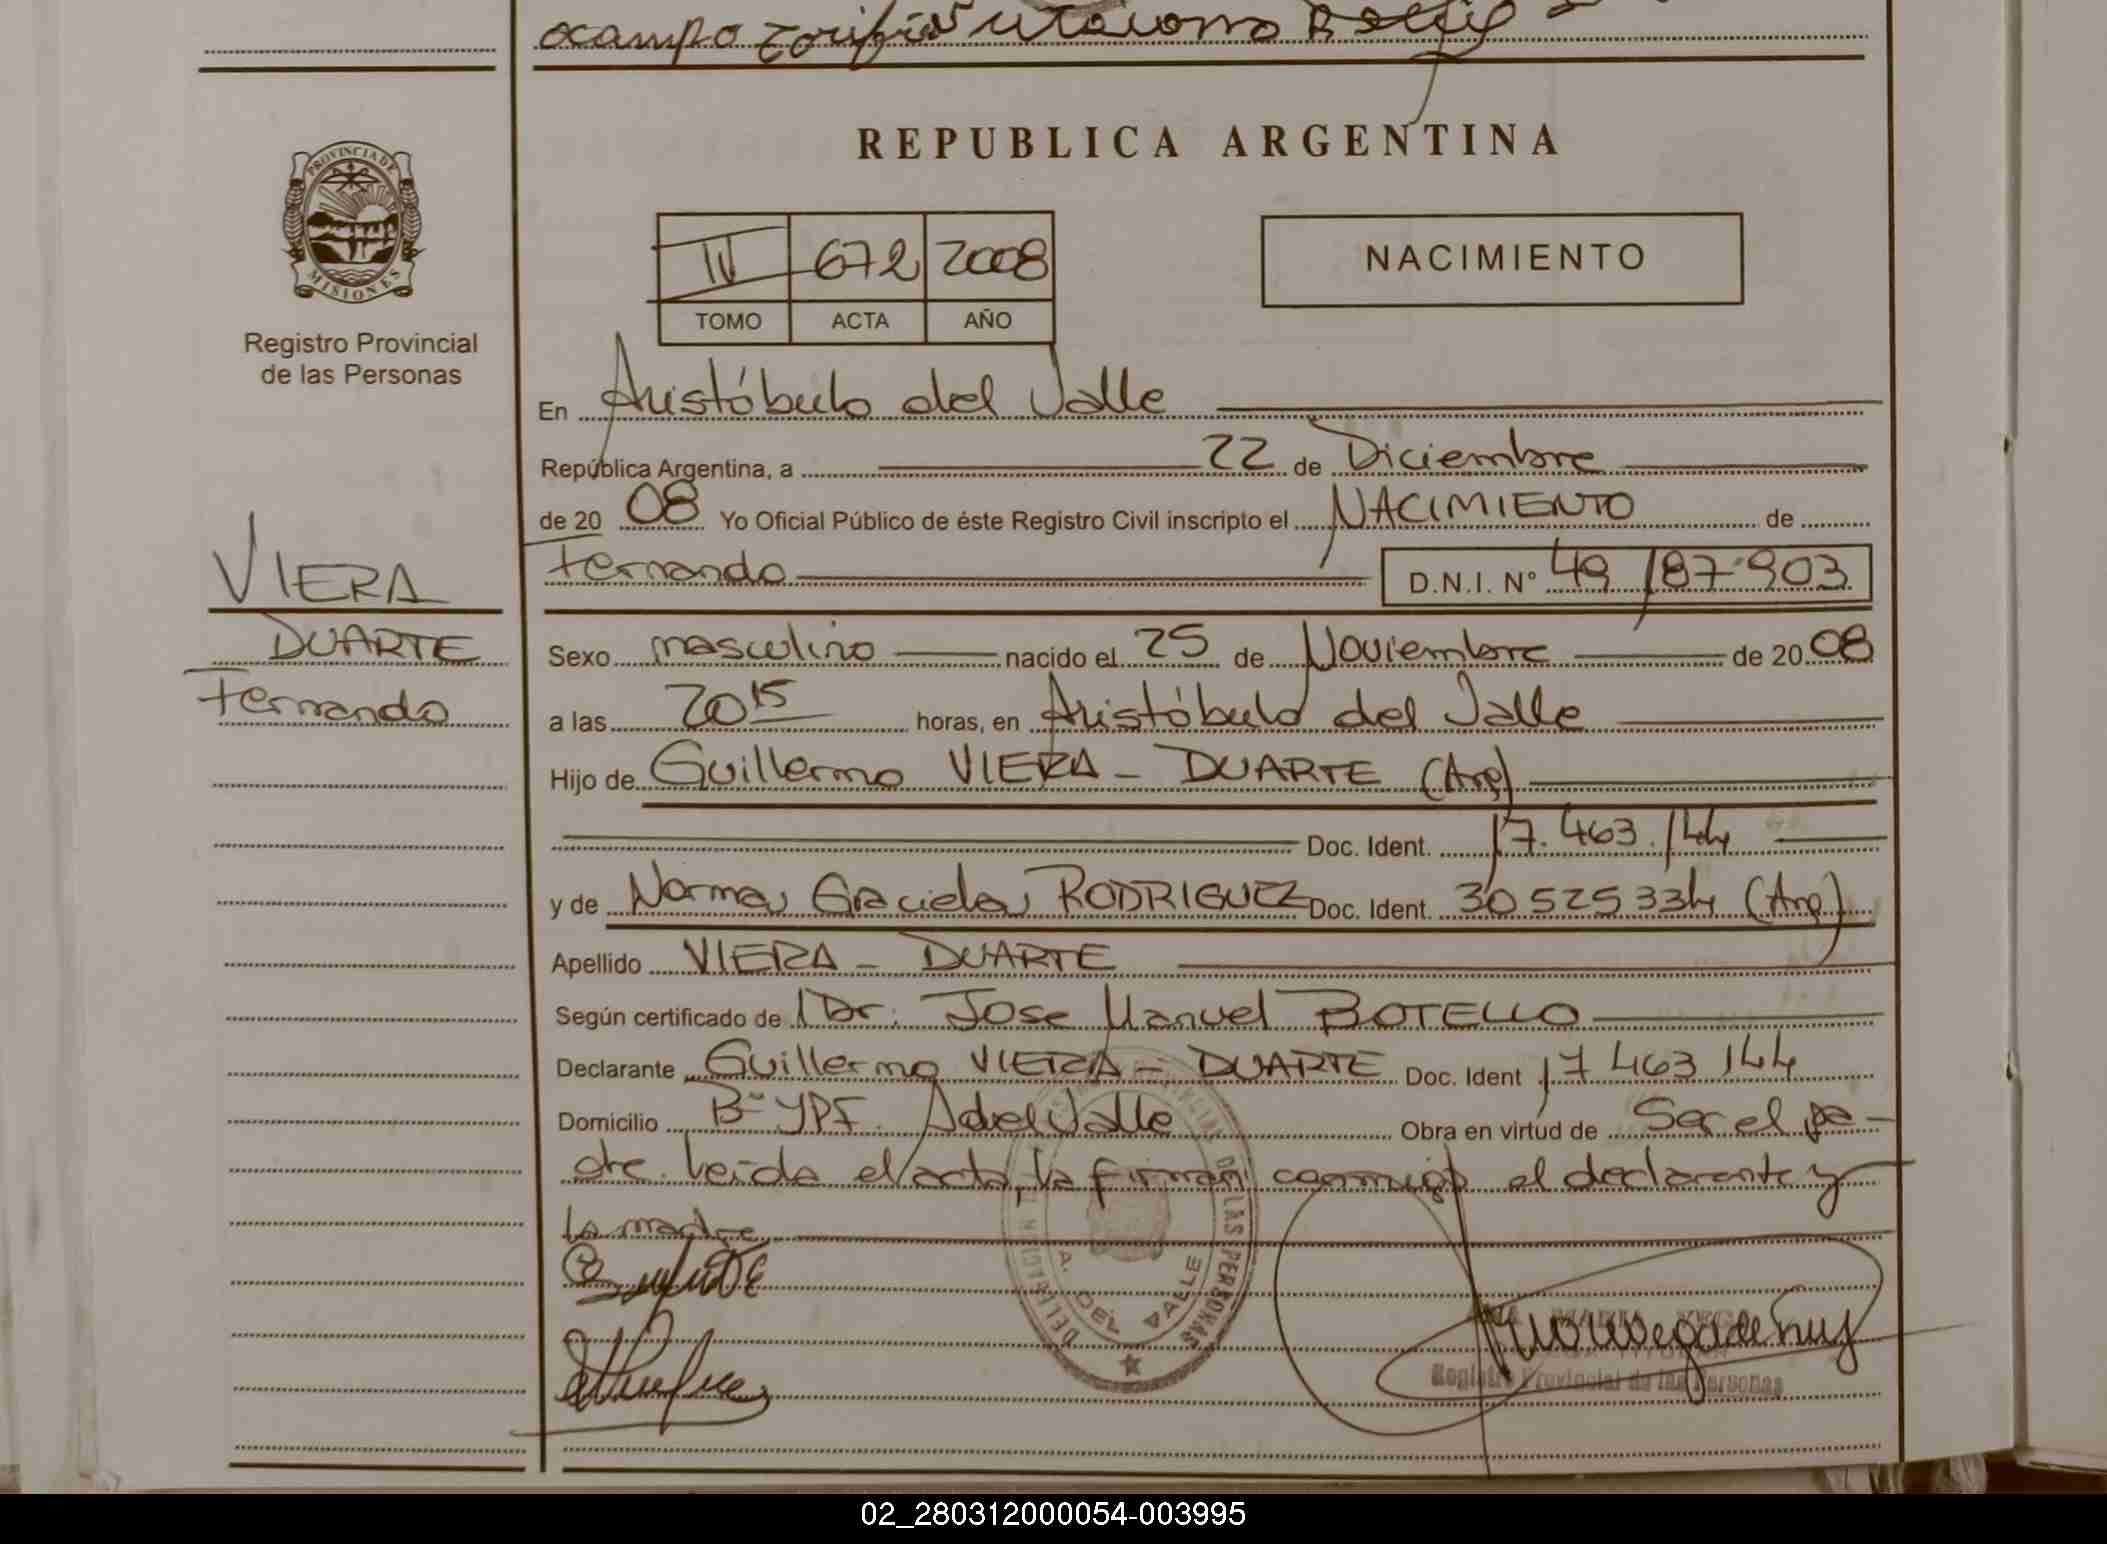 ocampo
REPUBLICA ARGENTINA
PROVINCIA DE
MISIONES
Registro Provincial
de las Personas
IV 672 2008
TOMO ACTA AÑO
NACIMIENTO
En Aristóbulo del Valle
República Argentina, a 22 de Diciembre
de 20 08 Yo Oficial Público de éste Registro Civil inscripto el NACIMIENTO de
Fernando D.N.I. N° 49187903
VIERA
DUARTE
Fernando
Sexo masculino nacido el 25 de Noviembre de 20 08
a las 20 15 horas, en Aristóbulo del Valle
Hijo de Guillermo VIERA - DUARTE (Arg)
Doc. Ident. 17.463.144
y de Norma Graciela RODRIGUEZ Doc. Ident. 30525334 (Arg)
Apellido VIERA - DUARTE
Según certificado de Dr. Jose Manuel BOTELLO
Declarante Guillermo VIERA - DUARTE Doc. Ident 17463144
Domicilio B° YPF. A del Valle Obra en virtud de Ser el pa-
dre. Leida el acta, la firman conmigo el declarante y
la madre
DELEGACION
DE LAS PERSONAS
A. DEL VALLE
ANA MARIA VEGA
Registro Provincial de las Personas
02_280312000054-003995